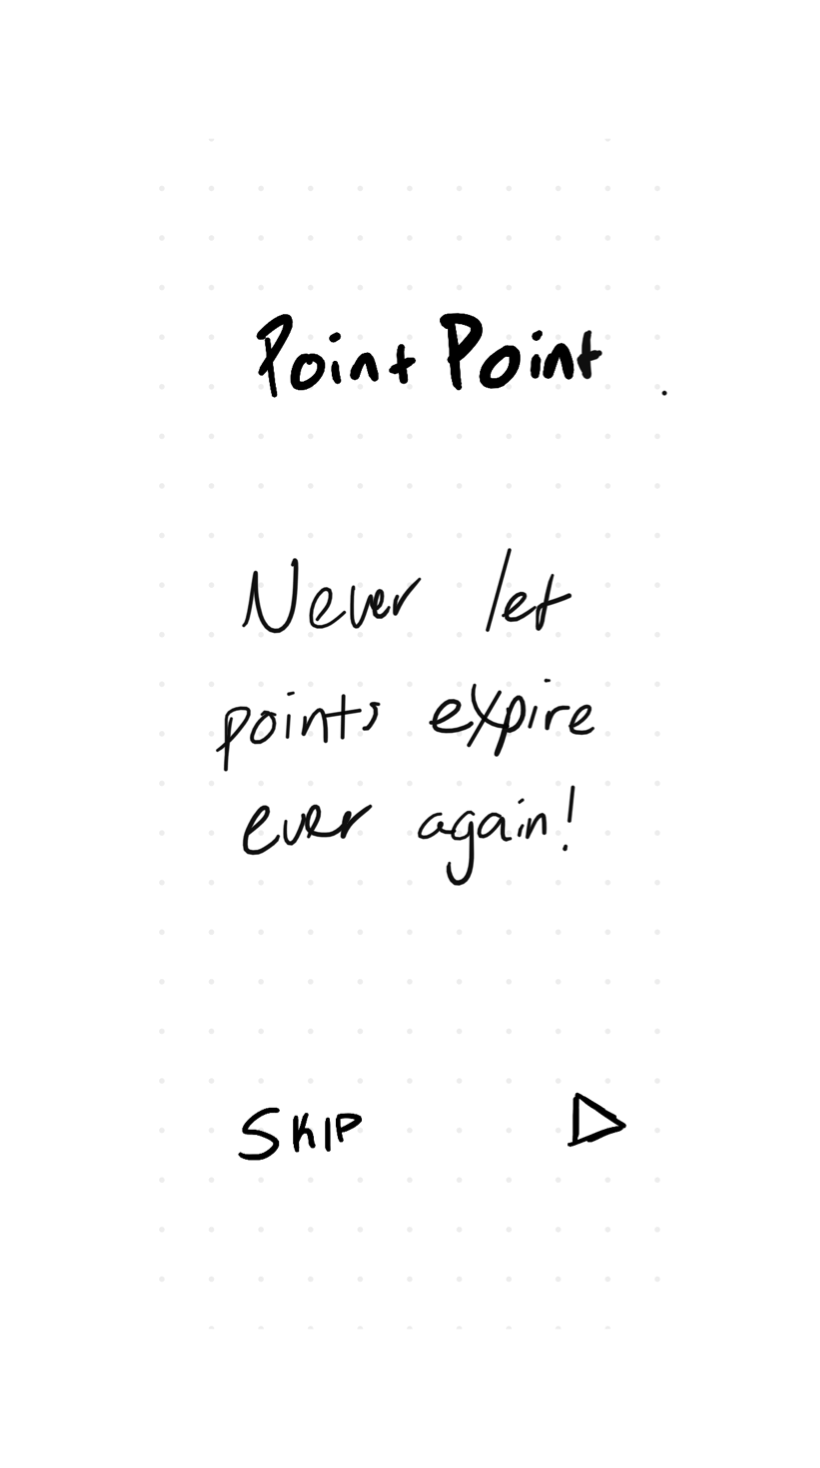 Point Point
Never let
points expire
ever again!
SKIP